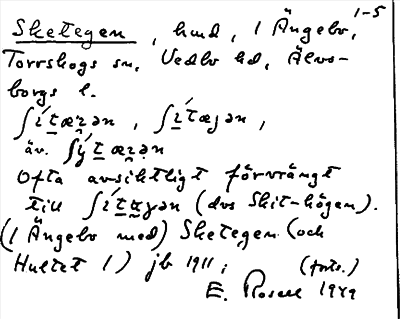 1-5
Sketegen, hmd, 1 Ängebo,
Torrskogs sn, Vedbo hd, Älvs-
borgs l.
ʃi´tæʒən, ʃi´tæjən,
äv. ʃy´tæʒən
Ofta avsiktligt förvrängt
till ʃi´tɣən (dvs Skit-högen).
(1 Ängebo med) Sketegen (och
Hultet 1) jb 1911; (forts.)
E. Rosell 1949